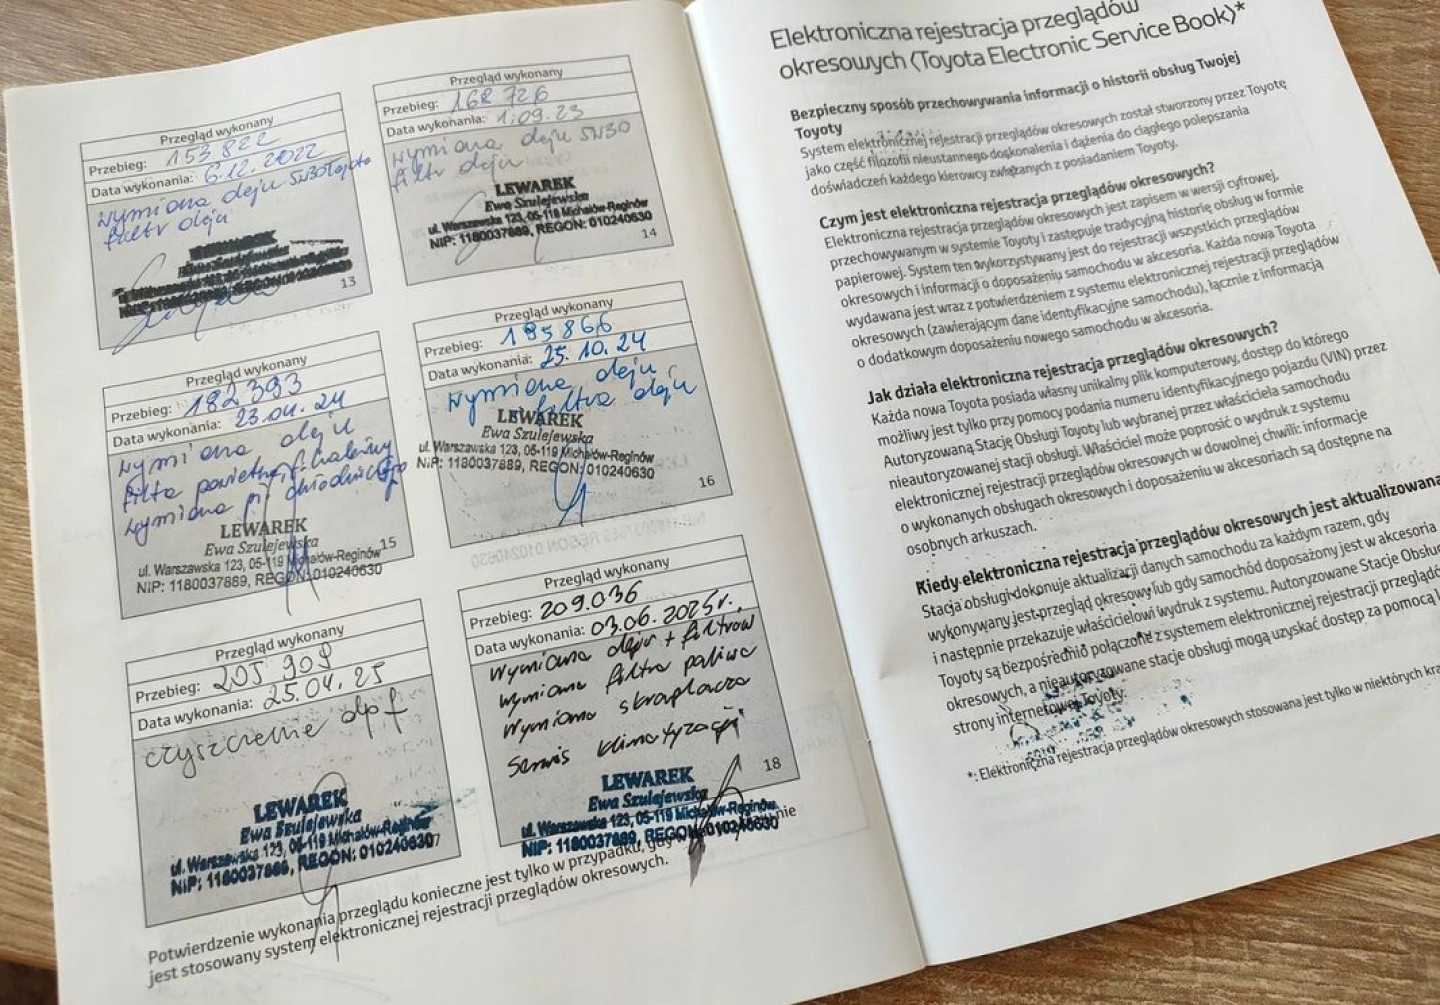 Przegląd wykonany
Przebieg: 153 822
Data wykonania: 6.12.2022
wymiana oleju 5W30 Toyota
filtr oleju
LEWAREK
13
Przegląd wykonany
Przebieg: 168 726
Data wykonania: 1.09.23
wymiana oleju 5W30
filtr oleju
LEWAREK
Ewa Szulejewska
ul. Warszawska 123, 05-119 Michałów-Reginów
NIP: 1180037889, REGON: 010240630
14
Przegląd wykonany
Przebieg: 182 393
Data wykonania: 23.04.24
wymiana oleju
filtra powietrza, f. kabiny
wymiana
LEWAREK
Ewa Szulejewska
ul. Warszawska 123, 05-119 Michałów-Reginów
NIP: 1180037889, REGON: 010240630
15
Przegląd wykonany
Przebieg: 195 866
Data wykonania: 25.10.24
wymiana oleju
filtra oleju
LEWAREK
Ewa Szulejewska
ul. Warszawska 123, 05-119 Michałów-Reginów
NIP: 1180037889, REGON: 010240630
16
Przegląd wykonany
Przebieg: 205 909
Data wykonania: 25.04.25
czyszczenie dpf
LEWAREK
Ewa Szulejewska
ul. Warszawska 123, 05-119 Michałów-Reginów
NIP: 1180037889, REGON: 010240630
7
Przegląd wykonany
Przebieg: 209.036
Data wykonania: 03.06.2025r.
wymiana oleju + filtrów
wymiana filtra paliwa
wymiana skraplacza
serwis klimatyzacji
18
LEWAREK
Ewa Szulejewska
ul. Warszawska 123, 05-119 Michałów-Reginów
NIP: 1180037889, REGON: 010240630
Potwierdzenie wykonania przeglądu konieczne jest tylko w przypadku, gdy nie
jest stosowany system elektronicznej rejestracji przeglądów okresowych.
Elektroniczna rejestracja przeglądów
okresowych (Toyota Electronic Service Book)*
Bezpieczny sposób przechowywania informacji o historii obsług Twojej
Toyoty
System elektronicznej rejestracji przeglądów okresowych został stworzony przez Toyotę
jako część filozofii nieustannego doskonalenia i dążenia do ciągłego polepszania
doświadczeń każdego kierowcy związanych z posiadaniem Toyoty.
Czym jest elektroniczna rejestracja przeglądów okresowych?
Elektroniczna rejestracja przeglądów okresowych jest zapisem w wersji cyfrowej,
przechowywanym w systemie Toyoty i zastępuje tradycyjną historię obsług w formie
papierowej. System ten wykorzystywany jest do rejestracji wszystkich przeglądów
okresowych i informacji o doposażeniu samochodu w akcesoria. Każda nowa Toyota
wydawana jest wraz z potwierdzeniem z systemu elektronicznej rejestracji przeglądów
okresowych (zawierającym dane identyfikacyjne samochodu), łącznie z informacją
o dodatkowym doposażeniu nowego samochodu w akcesoria.
Jak działa elektroniczna rejestracja przeglądów okresowych?
Każda nowa Toyota posiada własny unikalny plik komputerowy, dostęp do którego
możliwy jest tylko przy pomocy podania numeru identyfikacyjnego pojazdu (VIN) przez
Autoryzowaną Stację Obsługi Toyoty lub wybranej przez właściciela samochodu
nieautoryzowanej stacji obsługi. Właściciel może poprosić o wydruk z systemu
elektronicznej rejestracji przeglądów okresowych w dowolnej chwili: informacje
o wykonanych obsługach okresowych i doposażeniu w akcesoriach są dostępne na
osobnych arkuszach.
Kiedy elektroniczna rejestracja przeglądów okresowych jest aktualizowana
Stacja obsługi dokonuje aktualizacji danych samochodu za każdym razem, gdy
wykonywany jest przegląd okresowy lub gdy samochód doposażony jest w akcesoria
i następnie przekazuje właścicielowi wydruk z systemu. Autoryzowane Stacje Obsług
Toyoty są bezpośrednio połączone z systemem elektronicznej rejestracji przeglądó
okresowych, a nieautoryzowane stacje obsługi mogą uzyskać dostęp za pomocą
strony internetowej Toyoty.
*: Elektroniczna rejestracja przeglądów okresowych stosowana jest tylko w niektórych kra